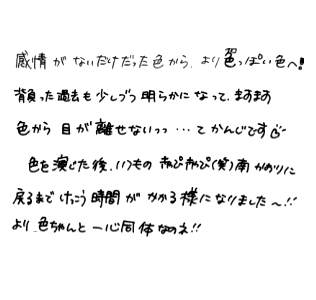 感情がないだけだった色から、より色っぽい色へ!
背負った過去も少しづつ明らかになって、ますます
色から目が離せないっっ…てかんじです
色を演じた後、いつもの きゃぴきゃぴ(笑)南 かおりに
戻るまでけっこう時間がかかる様になりました〜!!
より色ちゃんと一心同体なのネ!!